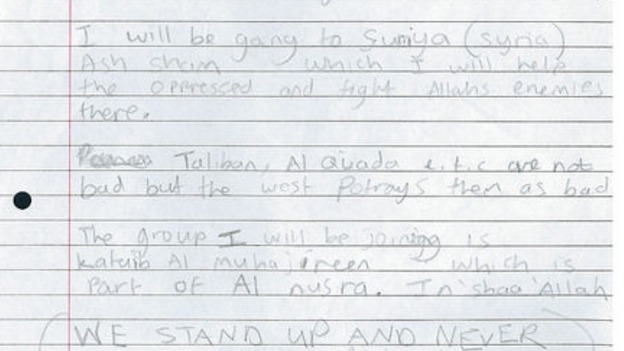 I will be gang to Suriya (syria)
Ash sham which I will help
the oppressed and fight Allahs enemies
there.
Taliban, Al Quada e.t.c are not
bad but the west Potrays them as bad
The group I will be joining is
kataib Al muhajireen which is
Part of Al nusra. In'shaa'Allah
(WE STAND UP AND NEVER